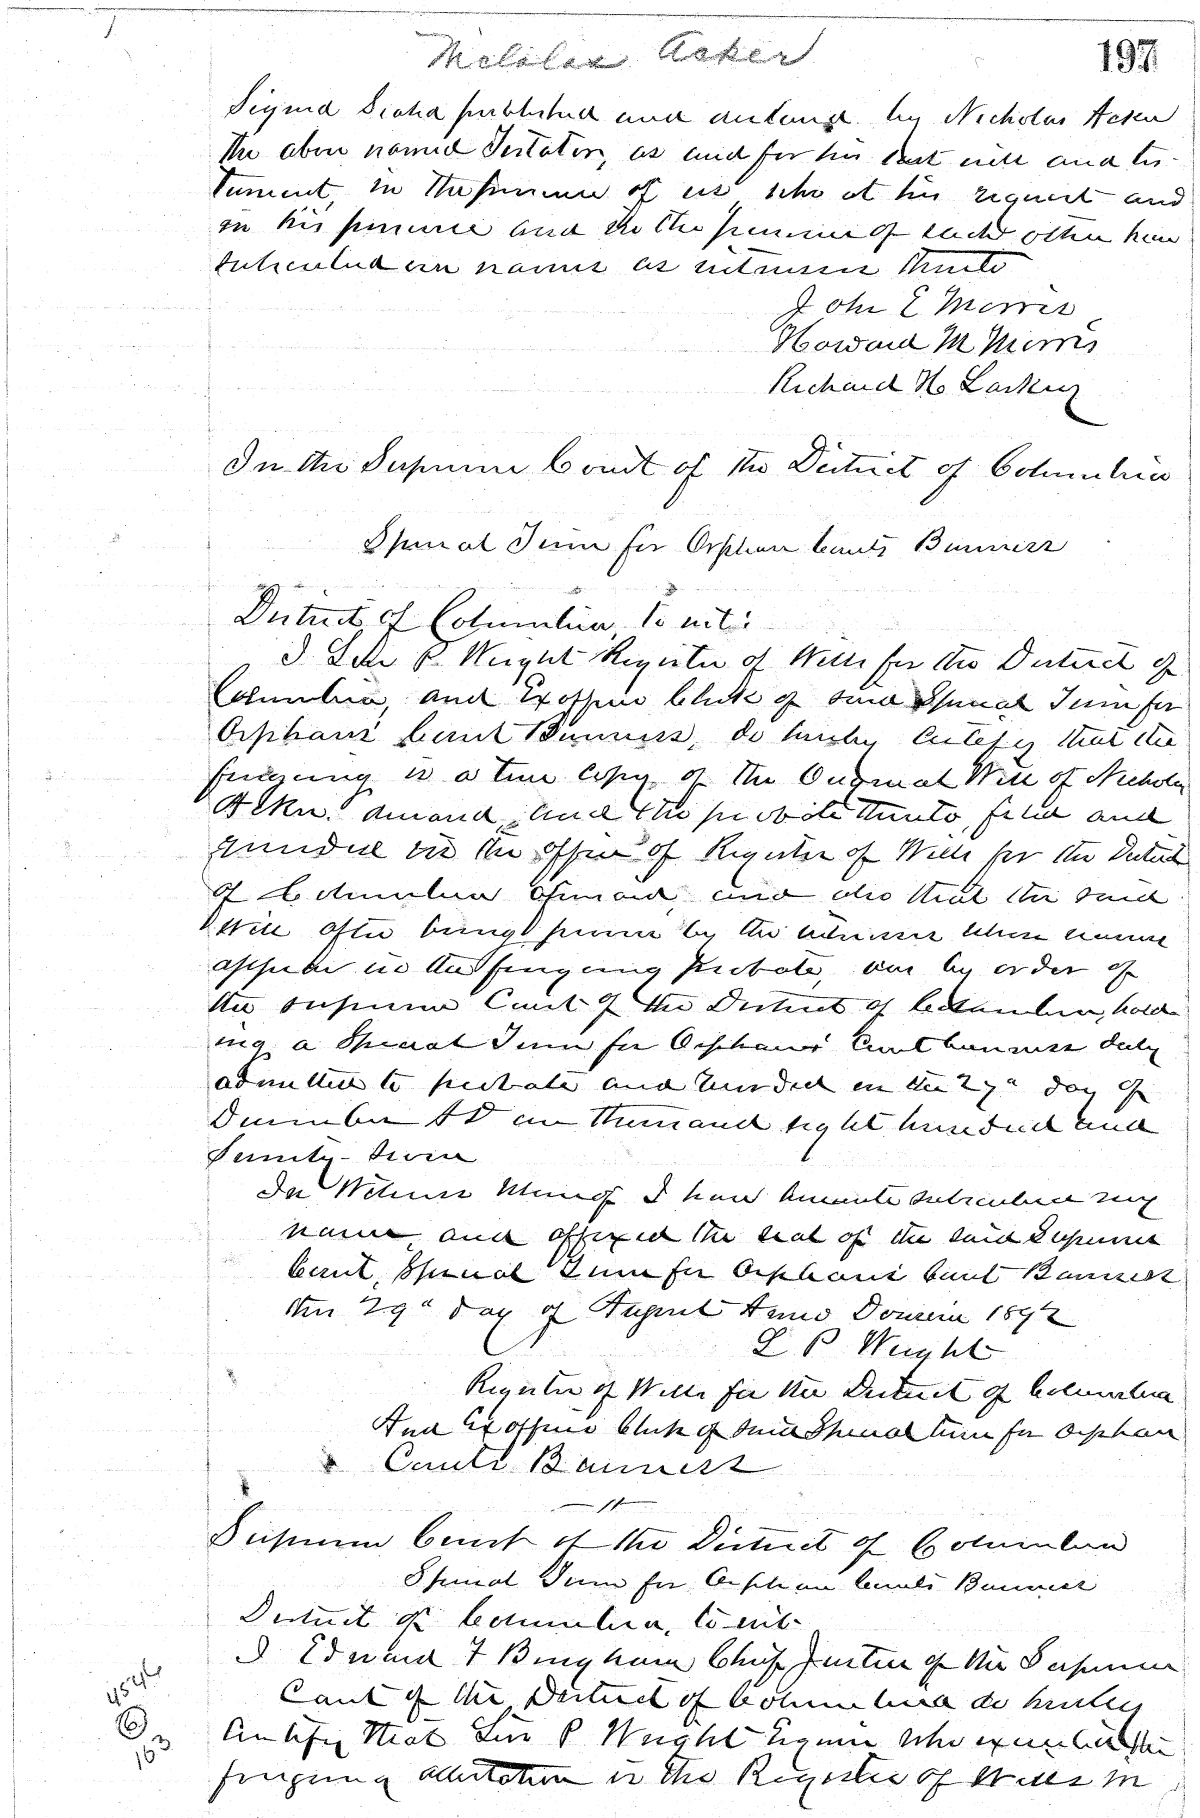 Nicholas Acker
197
Signed Sealed published and declared by Nicholas Acker
the above named Testator, as and for his last will and tes-
tament, in the presence of us who at his request and
in his presence and in the presence of each other have
subscribed our names as witnesses thereto
John E Morris
Howard M Morris
Richard H
In the Supreme Court of the District of Columbia
Special Term for Orphans Courts Business
District of Columbia, To wit:
I Levi P. Wright Register of Wills for the District of
Columbia, and Ex officio Clerk of said Special Term for
Orphans' Court Business, do hereby Certify that the
foregoing is a true copy of the Original Will of Nicholas
Acker, deceased, and the probate thereto, filed and
recorded in the office of Register of Wills for the District
of Columbia aforesaid, and also that the said
Will after being proven by the witnesses whose names
appear in the foregoing Probate, was by order of
the Supreme Court of the District of Columbia, hold-
ing a Special Term for Orphans' Court business duly
admitted to probate and recorded on the 27" day of
December AD one thousand eight hundred and
In Witness Whereof I have hereunto subscribed my
name, and affixed the seal of the said Supreme
Court, Special Term for Orphans' Court Business
this 29" day of August Anno Domini 1892
L P Wright
Register of Wills for the District of Columbia
And Ex officio Clerk of said Special term for Orphans
Courts Business
Supreme Court of the District of Columbia
Special Term for Orphans Courts Business
District of Columbia, to wit
I Edward F Bingham Chief Justice of the Supreme
Court of the District of Columbia do hereby
Certify that Levi P Wright Esquire who executed the
foregoing attestation is the Register of Wills in
6
163